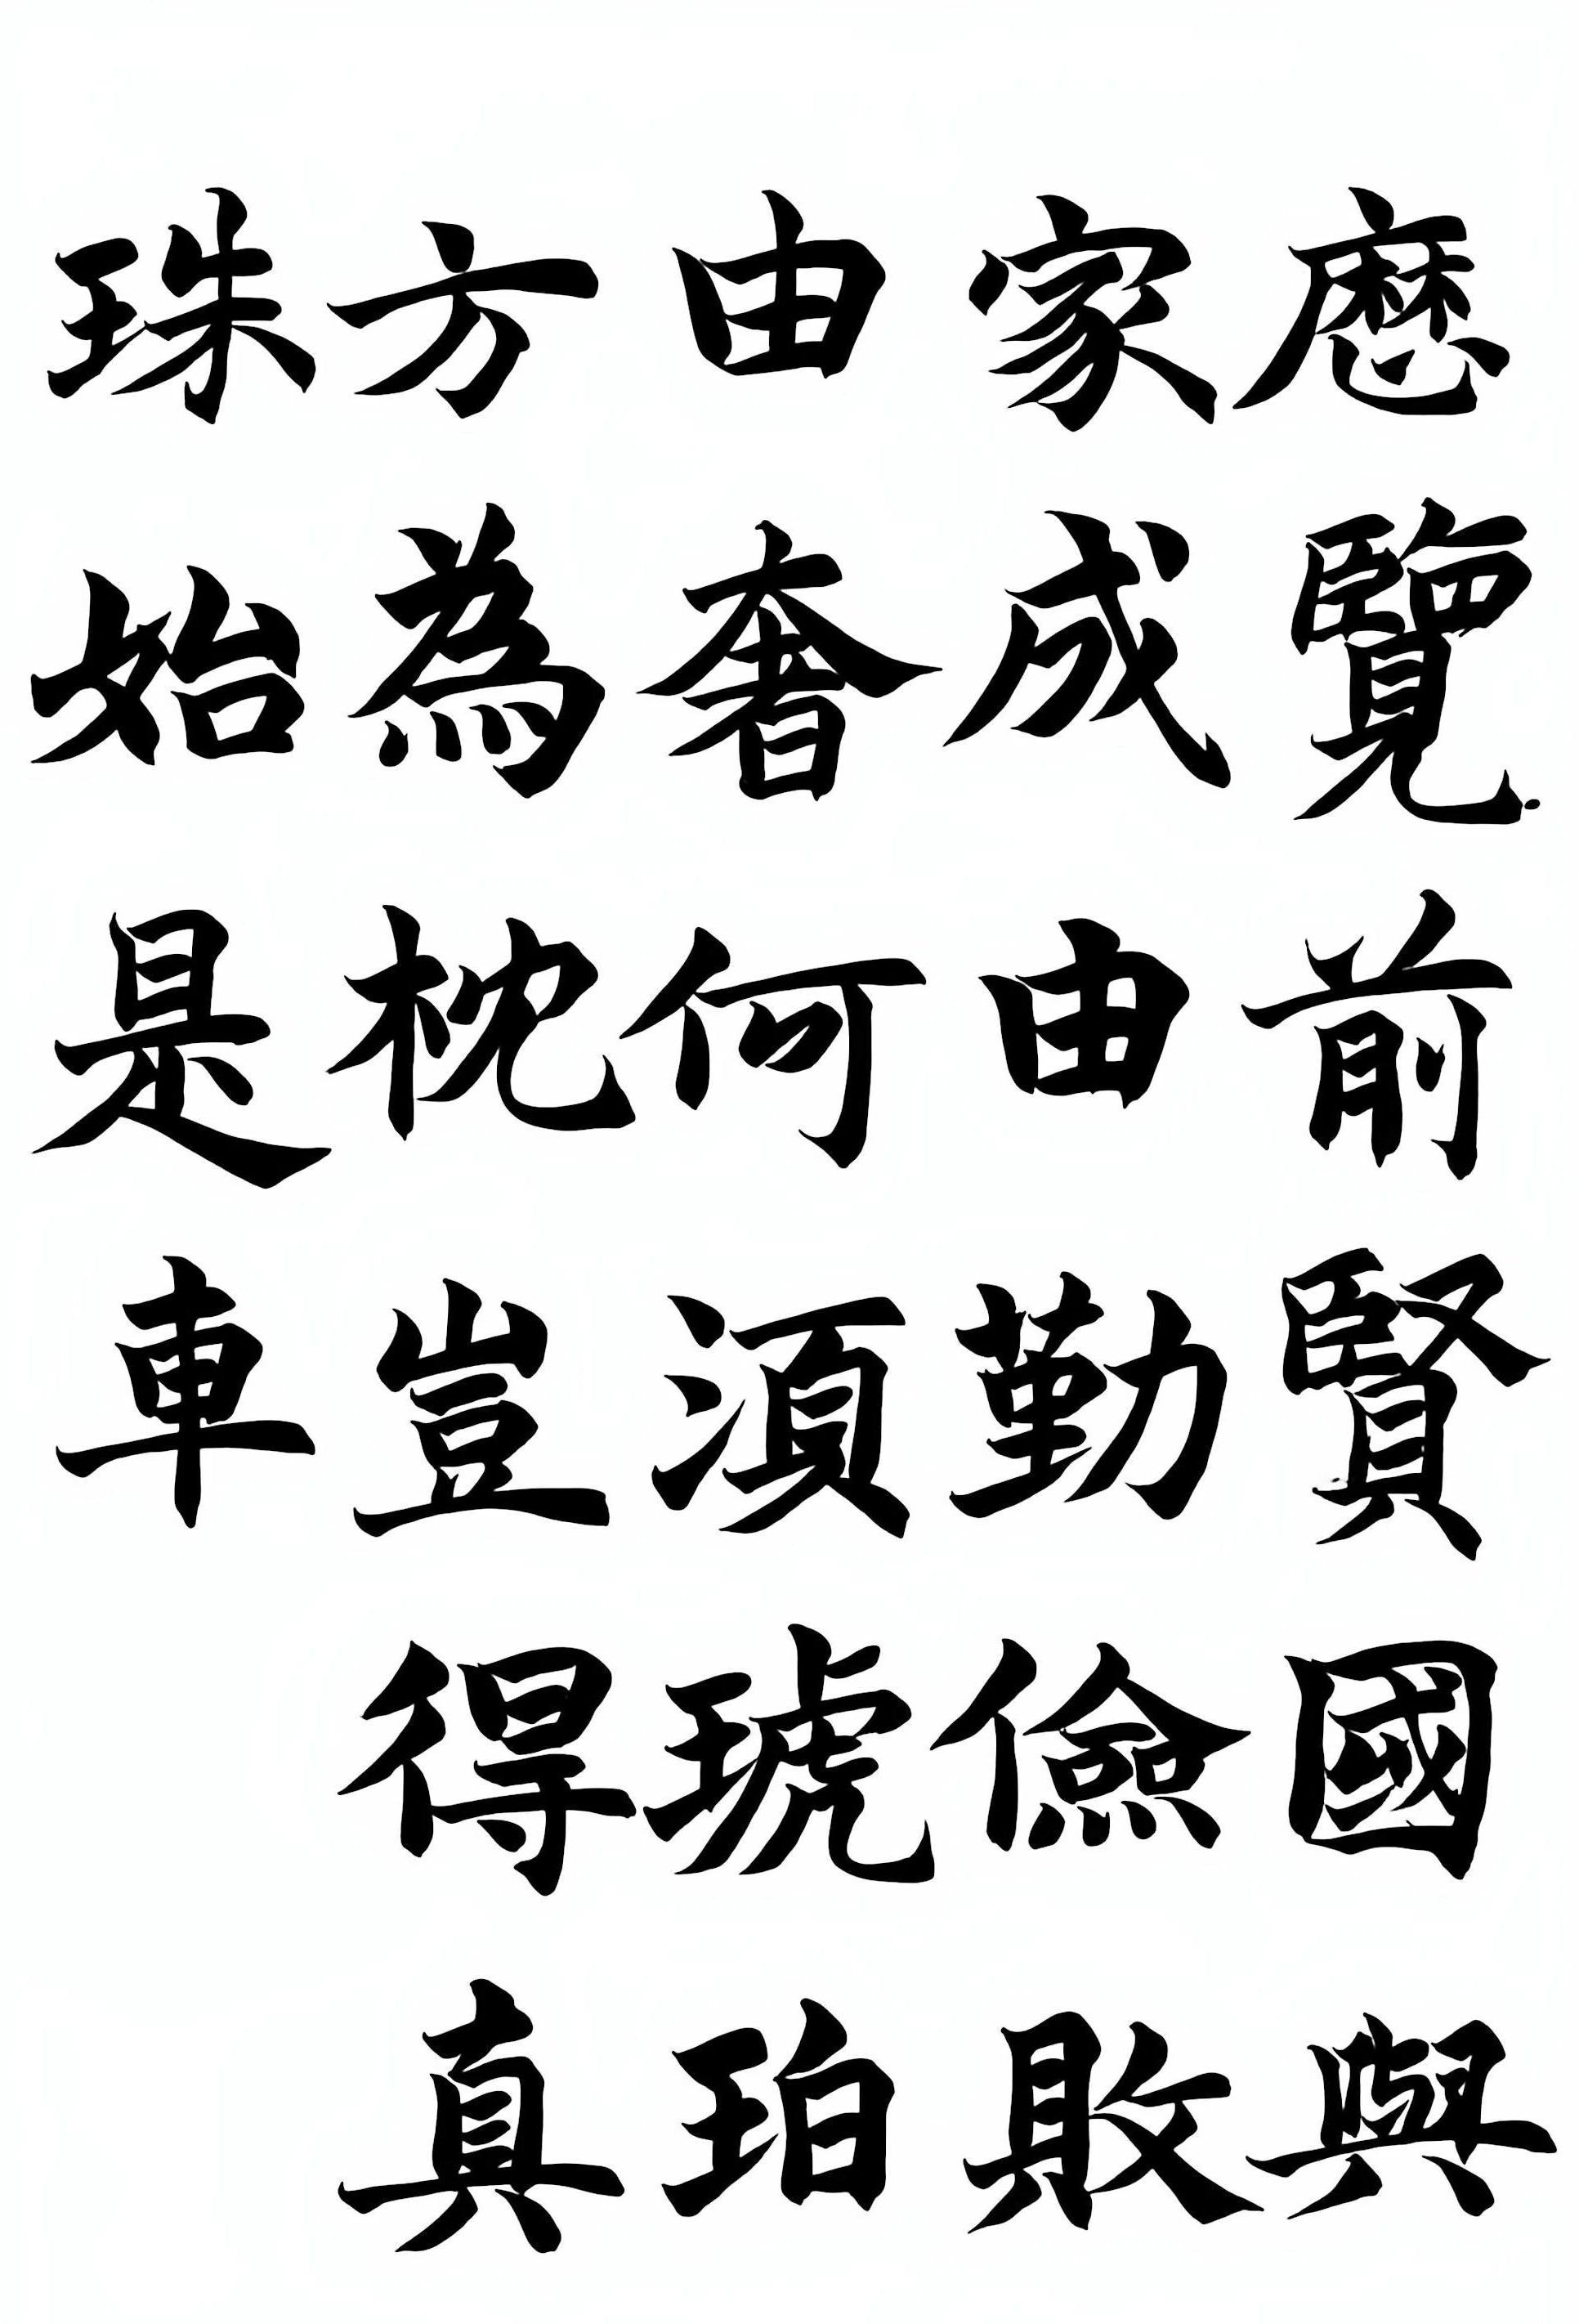 歷覽前賢國與
家成由勤儉敗
由奢何湏琥珀
方為枕豈得真
珠始是車